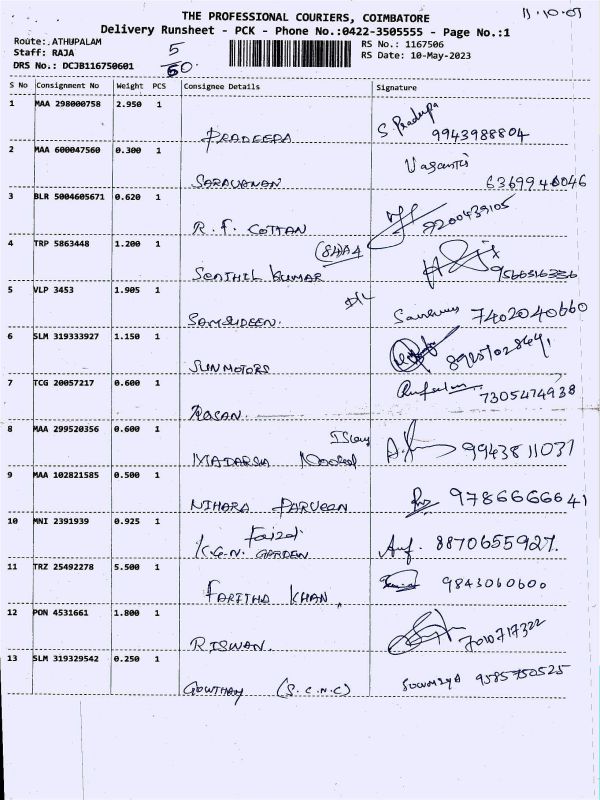 11.10.07
THE PROFESSIONAL COURIERS, COIMBATORE
Delivery Runsheet - PCK - Phone No.:0422-3505555 - Page No.:1
Route: ATHUPALAM
Staff: RAJA
DRS No.: DCJB116750601
5
60.
RS No.: 1167506
RS Date: 10-May-2023
S No Consignment No Weight PCS Consignee Details Signature
1 MAA 298000758 2.950 1 PRADEEPA S Pradeepa 9943988804
2 MAA 600047560 0.300 1 SARAVANAN Vasanthi 6369940046
3 BLR 5004605671 0.620 1 R.F. COTTAN 9200439105
4 TRP 5863448 1.200 1 SENTHIL KUMAR 9566516336
5 VLP 3453 1.905 1 SAMSUDEEN. 7402040660
6 SLM 319333927 1.150 1 SUN MOTORS
7 TCG 20057217 0.600 1 ROSAN 7305474938
8 MAA 299520356 0.600 1 MADARSA 9943811037
9 MAA 102821585 0.500 1 NIHARA PARVEEN 9786666641
10 MNI 2391939 0.925 1 K.G.N. GARDEN Faizal 8870655927.
11 TRZ 25492278 5.500 1 FARITHA KHAN, 9843060600
12 PON 4531661 1.800 1 RISWAN. 7010717322
13 SLM 319329542 0.250 1 GOWTHAM (S.C.N.C) Sowmiya 9585750525